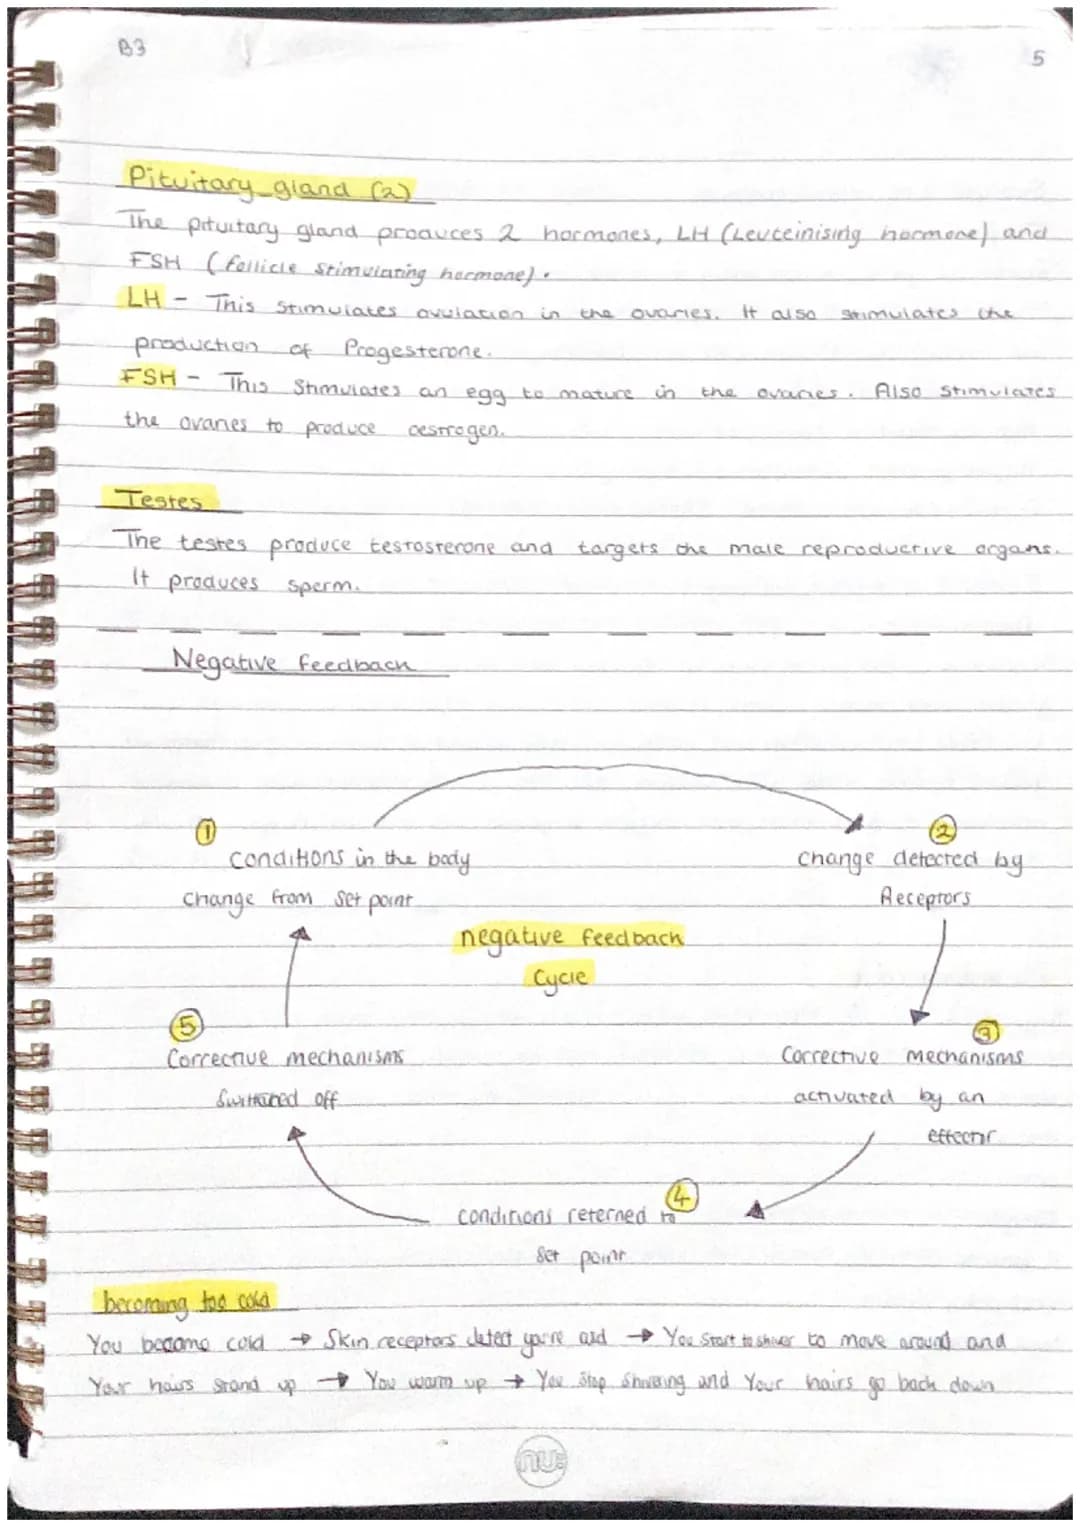 B3
5
Pituitary gland (2)
The pituitary gland produces 2 hormones, LH (Leuteinising hormone) and
FSH (follicle stimulating hormone).
LH - This stimulates ovulation in the ovaries. It also stimulates the
production of Progesterone.
FSH - This Stimulates an egg to mature in the ovaries. Also stimulates
the ovaries to produce oestrogen.
Testes
The testes produce testosterone and targets the male reproductive organs.
It produces sperm.
Negative feedback
1
2
Conditions in the body
Change from Set point
Change detected by
Receptors
negative feedback
Cycle
5
3
Corrective mechanisms
Switched off
Corrective Mechanisms
activated by an
effector
4
conditions reterned to
Set point
becoming too cold
You become cold → Skin receptors detect you're cold → You Start to shiver to move around and
Your hairs stand up → You warm up → You Stop Shivering and Your hairs go back down
nu: